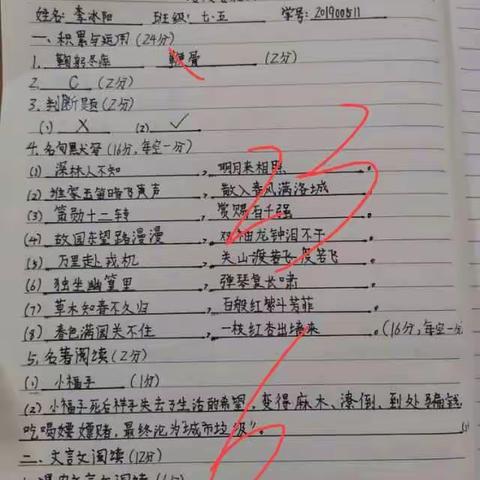 姓名:李冰阳 班级:七.五 学号:201900511
一、积累与运用(24分)
1. 鞠躬尽瘁 骨(2分)
2. C (2分)
3. 判断题(2分)
(1) X (2) ✓
4. 名句默写(16分,每空一分)
(1) 深林人不知,明月来相照。
(2) 谁家玉笛暗飞声,散入春风满洛城。
(3) 策勋十二转,赏赐百千强。
(4) 故园东望路漫漫,双袖龙钟泪不干。
(5) 万里赴戎机,关山渡若飞。
(6) 独坐幽篁里,弹琴复长啸。
(7) 草木知春不久归,百般红紫斗芳菲。
(8) 春色满园关不住,一枝红杏出墙来。(16分,每空一分
5. 名著阅读(2分)
(1) 小福子 (1分)
(2) 小福子死后祥子失去了生活的希望,变得麻木、潦倒、到处骗钱
吃喝嫖赌,最终沦为城市垃圾"。
二、文言文阅读(12分)
23